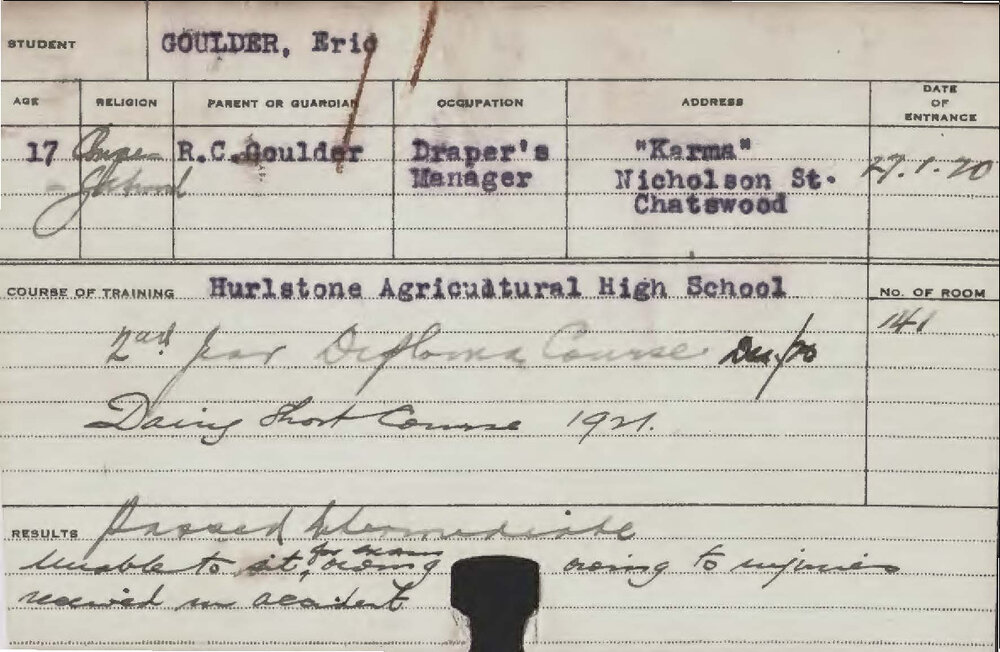 STUDENT GOULDER, Eric
AGE RELIGION PARENT OR GUARDIAN OCCUPATION ADDRESS DATE OF ENTRANCE
17 R.C.Goulder Draper's Manager "Karma" Nicholson St. Chatswood 27.1.20
COURSE OF TRAINING Hurlstone Agricultural High School NO. OF ROOM
141
2nd Year Diploma Course
Dairy Short Course 1921.
RESULTS Passed Intermediate
Unable to sit, for exams owing owing to injuries
received in accident